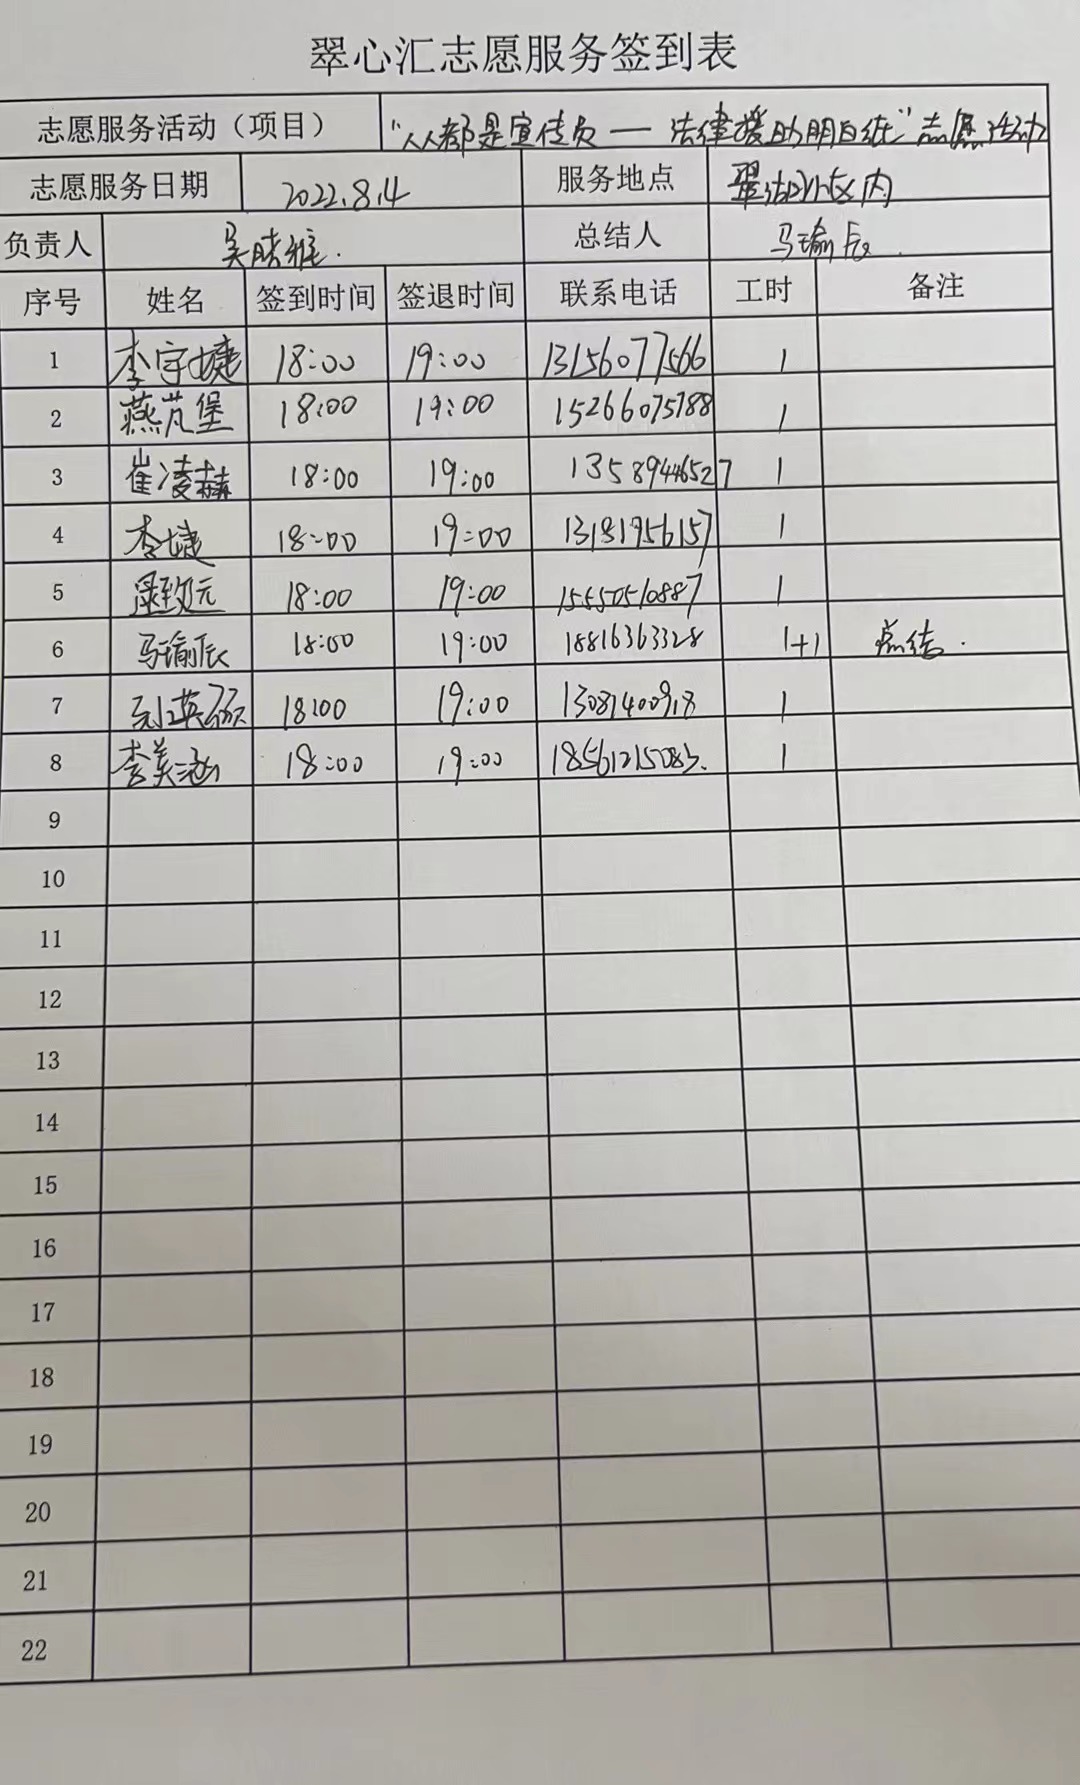 翠心汇志愿服务签到表
志愿服务活动（项目） “人人都是宣传员一法律援助明白纸”志愿活动
志愿服务日期 2022.8.4 服务地点 翠湖小区内
负责人 吴晓雅. 总结人 马瑜辰.
序号 姓名 签到时间 签退时间 联系电话 工时 备注
1 李宇婕 18:00 19:00 13156077566 1
2 燕芃堡 18:00 19:00 15266075788 1
3 崔凌赫 18:00 19:00 13589446527 1
4 李婕 18:00 19:00 13181956157 1
5 致元 18:00 19:00 15550510887 1
6 马瑜辰 18:00 19:00 18816363328 1+1 总结.
7 刘英硕 18:00 19:00 13081400918 1
8 李美涵 18:00 19:00 18561215083. 1
9
10
11
12
13
14
15
16
17
18
19
20
21
22